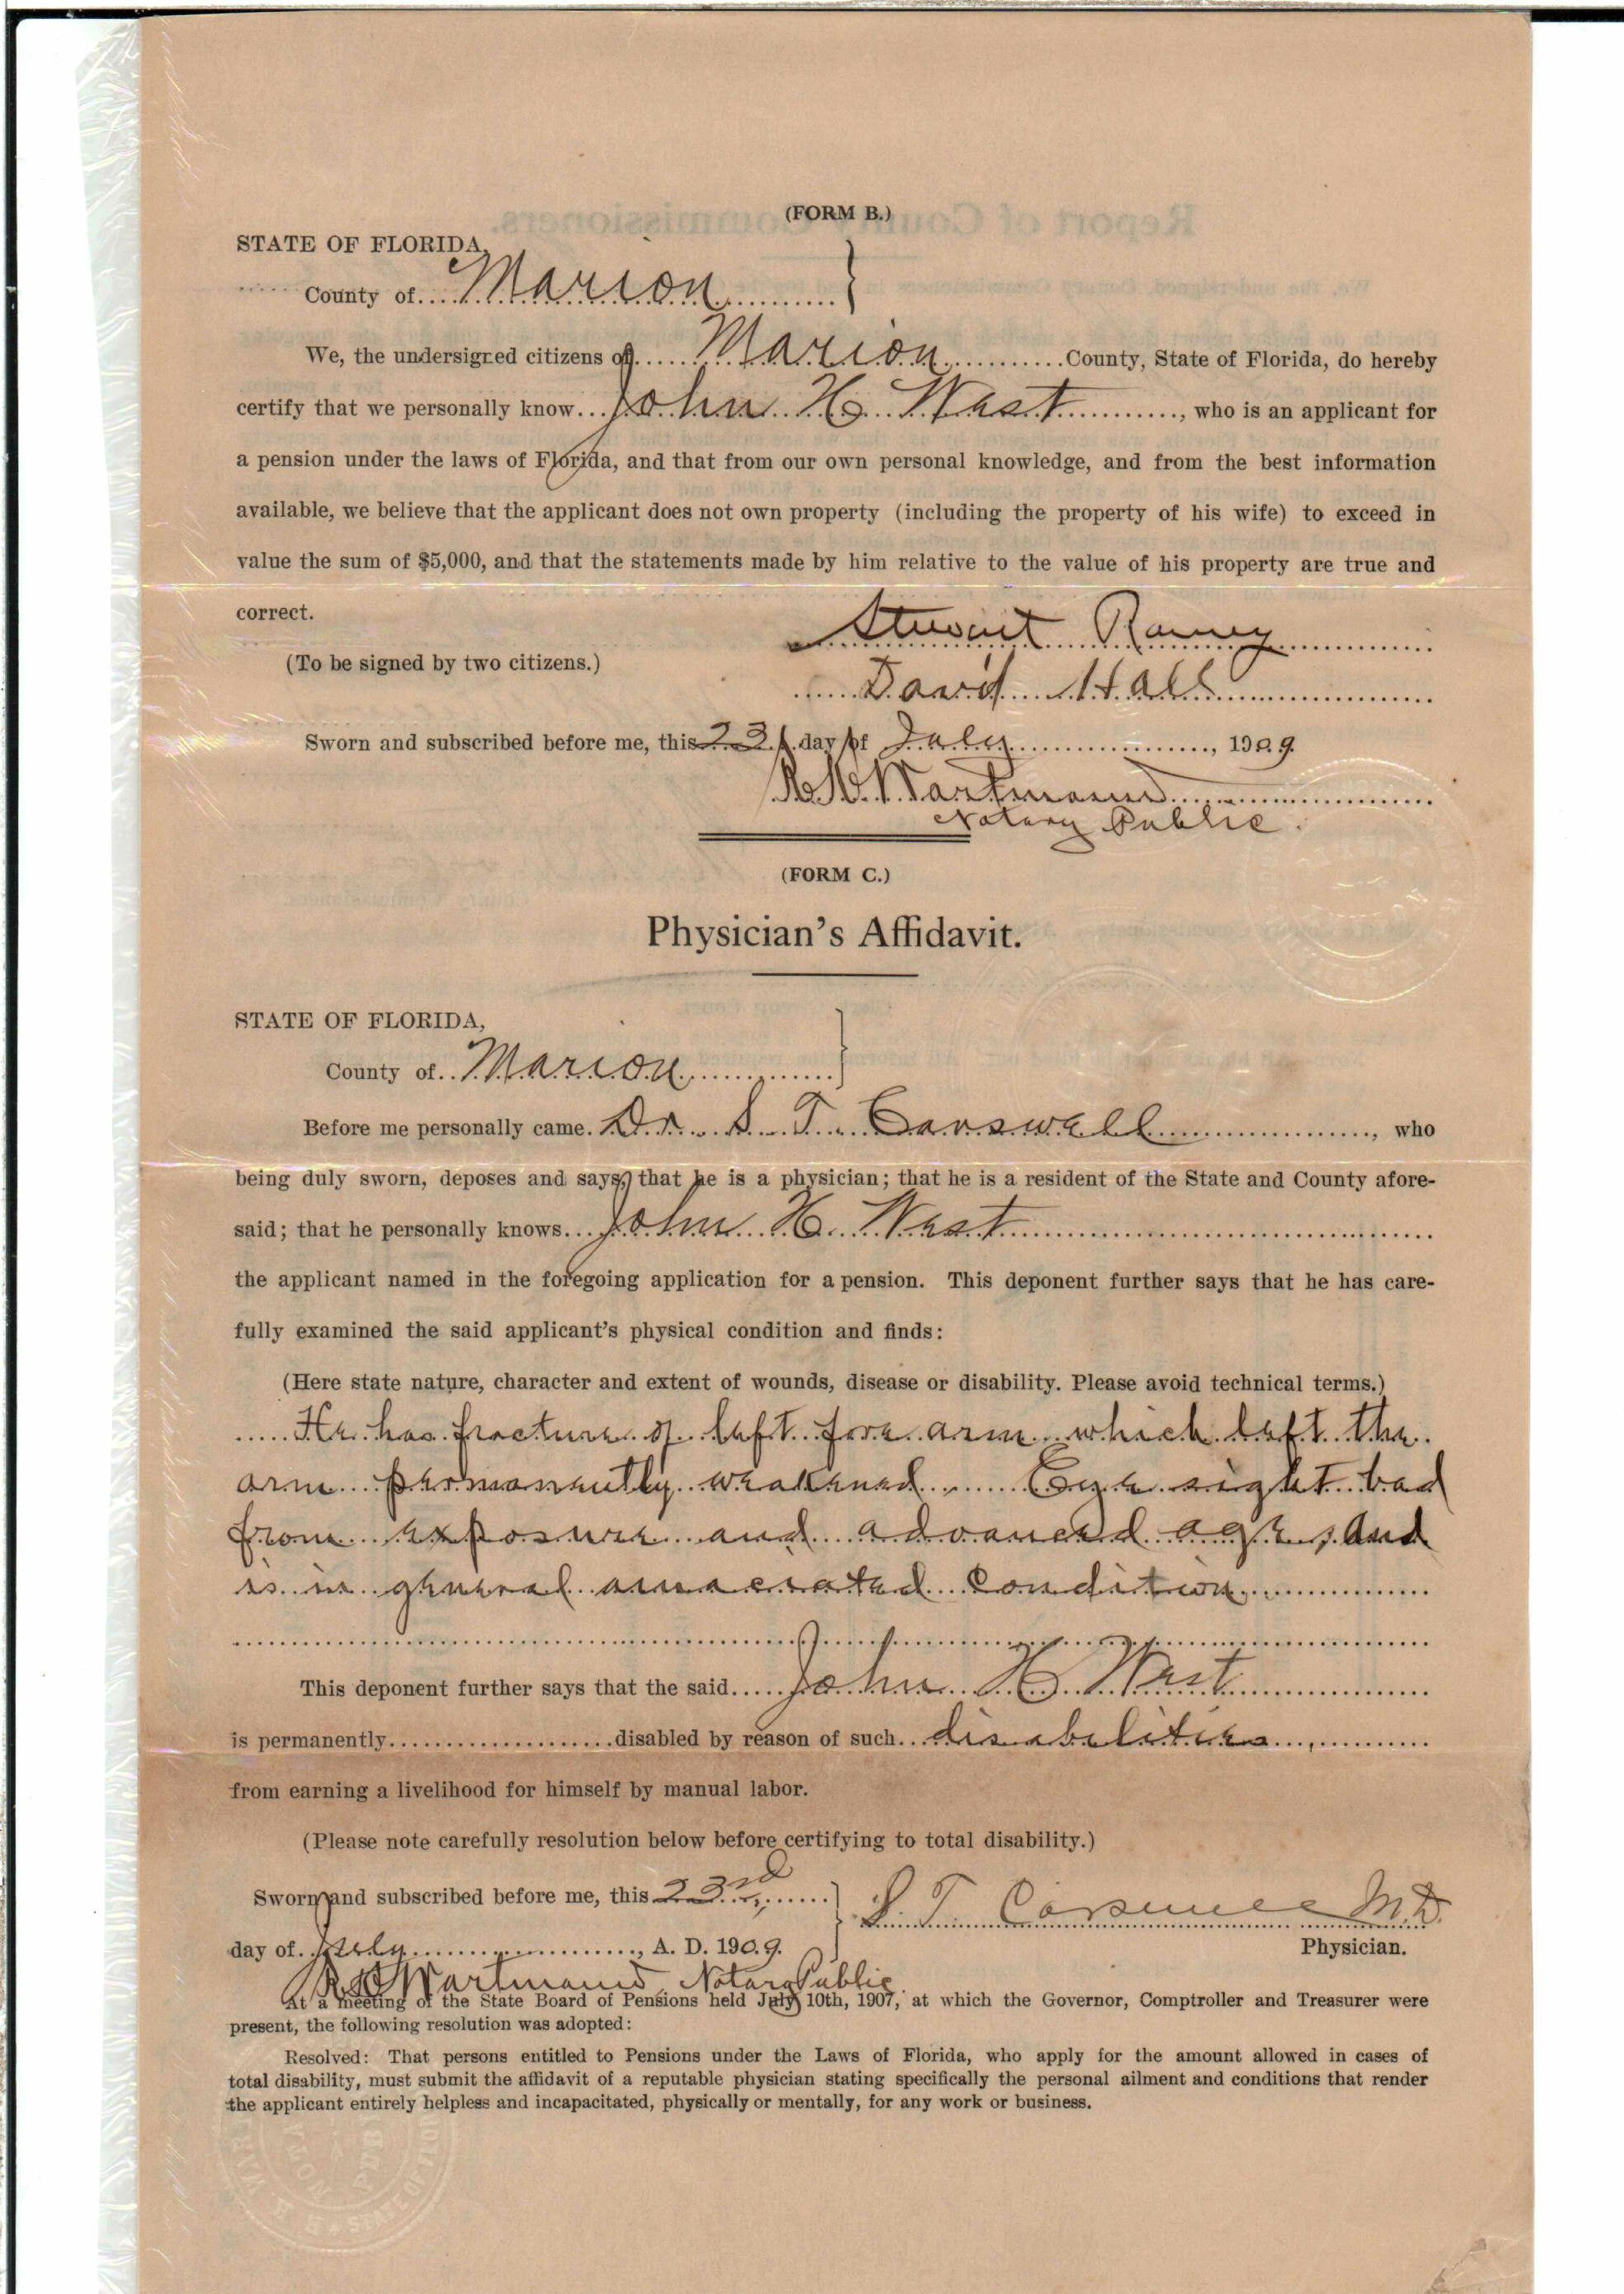 (FORM B.)
STATE OF FLORIDA,
County of Marion
We, the undersigned citizens of Marion County, State of Florida, do hereby
certify that we personally know John H West, who is an applicant for
a pension under the laws of Florida, and that from our own personal knowledge, and from the best information
available, we believe that the applicant does not own property (including the property of his wife) to exceed in
value the sum of $5,000, and that the statements made by him relative to the value of his property are true and
correct.
Stewart Ramey
(To be signed by two citizens.)
David Hall
Sworn and subscribed before me, this 23 day of July, 1909.
Wartmann
Notary Public.
(FORM C.)
Physician's Affidavit.
STATE OF FLORIDA,
County of Marion
Before me personally came Dr. S. T. Carswell, who
being duly sworn, deposes and says, that he is a physician; that he is a resident of the State and County afore-
said; that he personally knows John H. West
the applicant named in the foregoing application for a pension. This deponent further says that he has care-
fully examined the said applicant's physical condition and finds:
(Here state nature, character and extent of wounds, disease or disability. Please avoid technical terms.)
He has fracture of left fore arm which left the
arm permanently weakened. Eye sight bad
from exposure and advanced age, and
is in general amaciated condition.
This deponent further says that the said John H West
is permanently disabled by reason of such disabilities
from earning a livelihood for himself by manual labor.
(Please note carefully resolution below before certifying to total disability.)
Sworn and subscribed before me, this 23rd
S. T. Carswell M.D.
day of July, A. D. 1909.
Physician.
Wartmann, Notary Public
At a meeting of the State Board of Pensions held July 10th, 1907, at which the Governor, Comptroller and Treasurer were
present, the following resolution was adopted:
Resolved: That persons entitled to Pensions under the Laws of Florida, who apply for the amount allowed in cases of
total disability, must submit the affidavit of a reputable physician stating specifically the personal ailment and conditions that render
the applicant entirely helpless and incapacitated, physically or mentally, for any work or business.